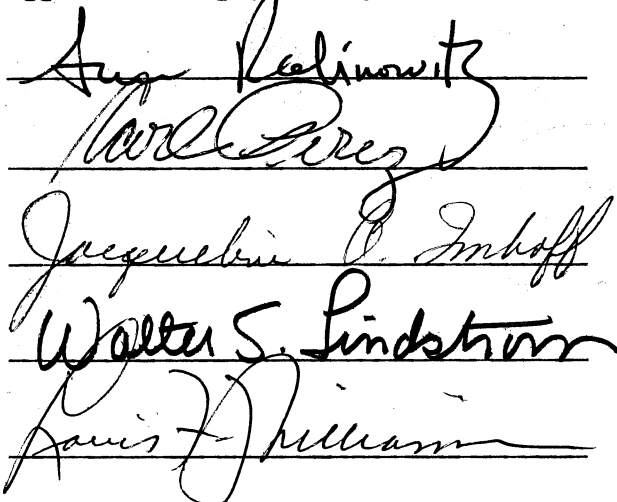 Rabinowitz
Carl Perez
Jacqueline O. Imhoff
Walter S. Lindstrom
Louis F. Williamson